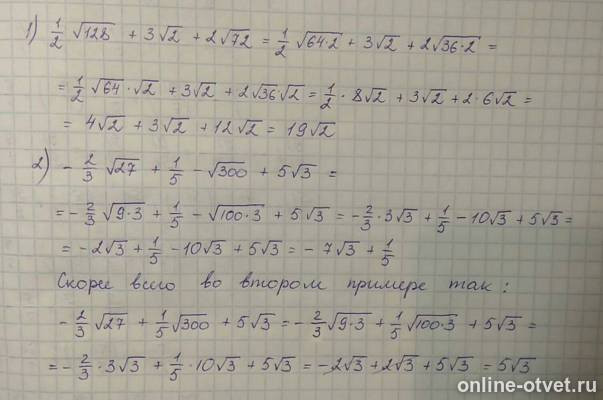 1) 1/2 √128 + 3√2 + 2√72 = 1/2 √(64·2) + 3√2 + 2√(36·2) =
= 1/2 √64 · √2 + 3√2 + 2√36 √2 = 1/2 · 8√2 + 3√2 + 2 · 6√2 =
= 4√2 + 3√2 + 12√2 = 19√2
2) - 2/3 √27 + 1/5 - √300 + 5√3 =
= - 2/3 √(9·3) + 1/5 - √(100·3) + 5√3 = - 2/3 · 3√3 + 1/5 - 10√3 + 5√3 =
= -2√3 + 1/5 - 10√3 + 5√3 = - 7√3 + 1/5
Скорее всего во втором примере так:
- 2/3 √27 + 1/5 √300 + 5√3 = - 2/3 √(9·3) + 1/5 √(100·3) + 5√3 =
= - 2/3 · 3√3 + 1/5 · 10√3 + 5√3 = -2√3 + 2√3 + 5√3 = 5√3
online-otvet.ru